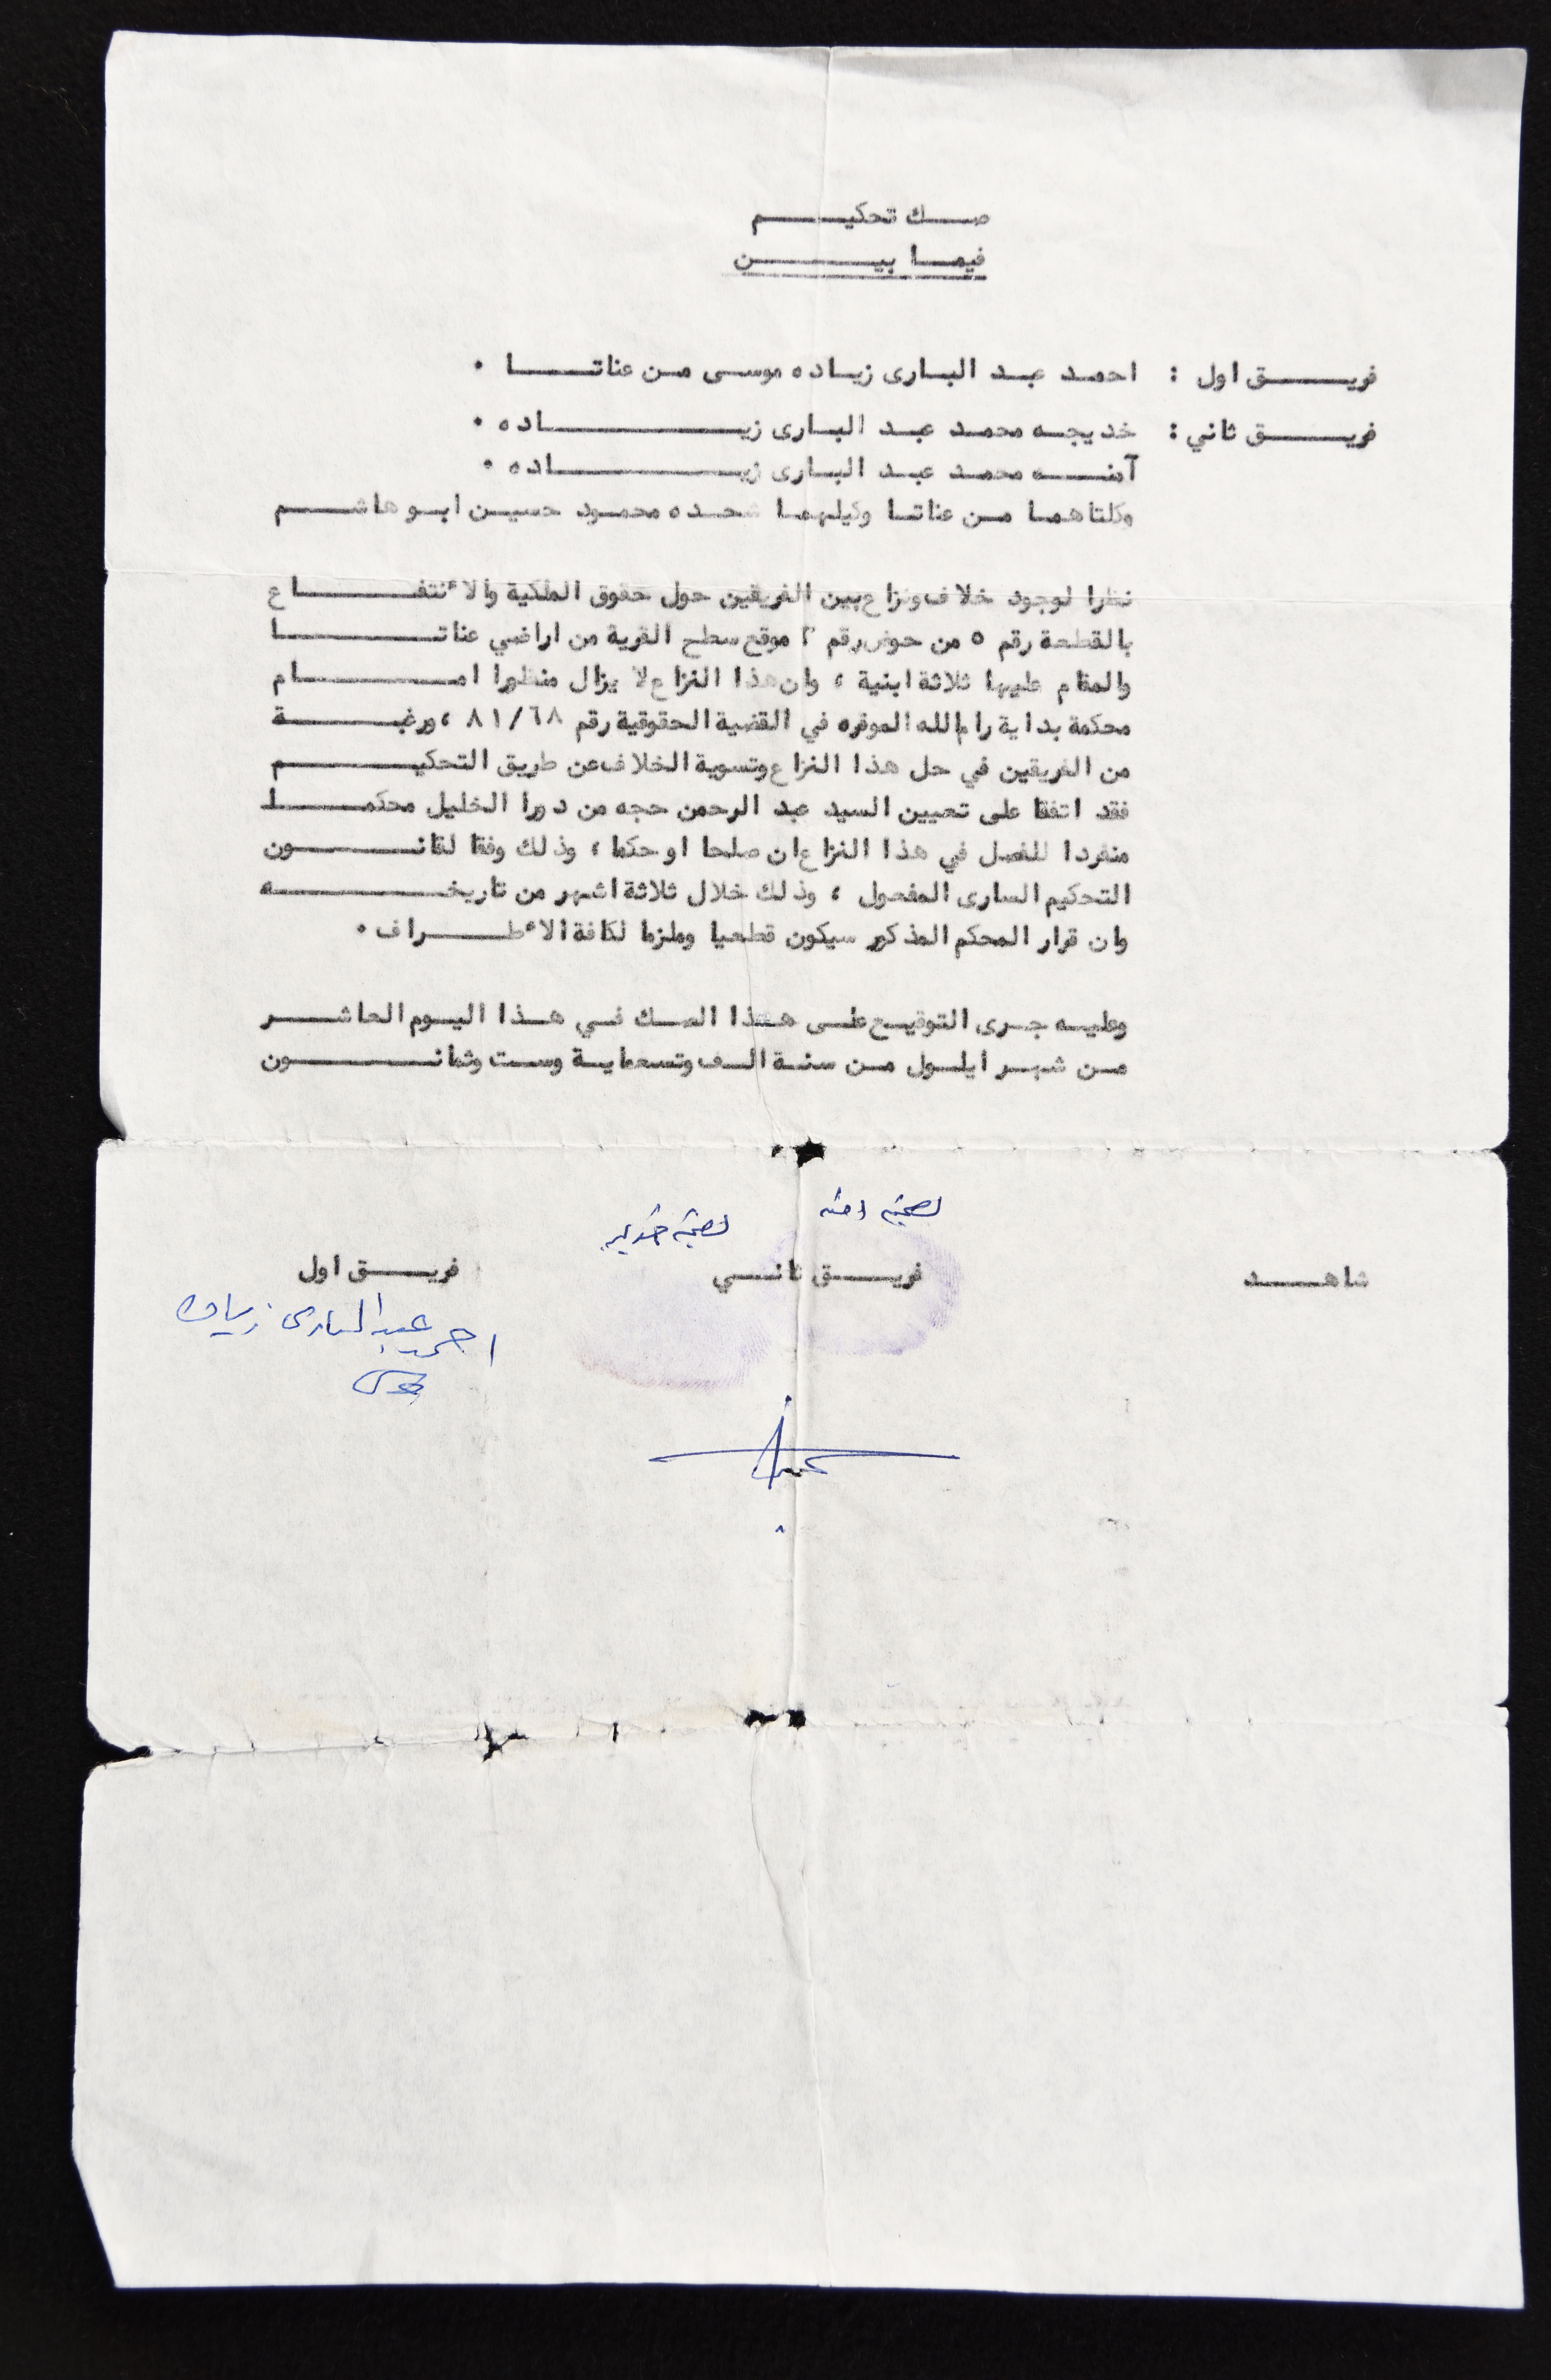 صك تحكيم
فيما بين
فريق اول : احمد عبد البارى زياده موسى من عناتا .
فريق ثاني : خديجه محمد عبد البارى زياده .
آمنه محمد عبد البارى زياده .
وكلتاهما من عناتا وكيلهما شحده محمود حسين ابو هاشم
نظرا لوجود خلاف ونزاع بين الفريقين حول حقوق الملكية والائنتفاع
بالقطعة رقم ٥ من حوض رقم ٢ موقع سطح القرية من اراضي عناتا
والمقام عليها ثلاثة ابنية ، وان هذا النزاع لا يزال منظورا امام
محكمة بداية رام الله الموقره في القضية الحقوقية رقم ٨١/٦٨ ، ورغبة
من الفريقين في حل هذا النزاع وتسوية الخلاف عن طريق التحكيم
فقد اتفقا على تعيين السيد عبد الرحمن حجه من دورا الخليل محكما
منفردا للفصل في هذا النزاع ان صلحا او حكما ، وذلك وفقا لقانون
التحكيم السارى المفعول ، وذلك خلال ثلاثة اشهر من تاريخه
وان قرار المحكم المذكور سيكون قطعيا وملزما لكافة الائطراف .
وعليه جرى التوقيع على هذا الصك في هذا اليوم العاشر
من شهر ايلول من سنة الف وتسعماية وست وثمانون
بصمة امنه
بصمة خديجه
شاهد فريق ثاني فريق اول
احمد عبد الباري زياده
موسى